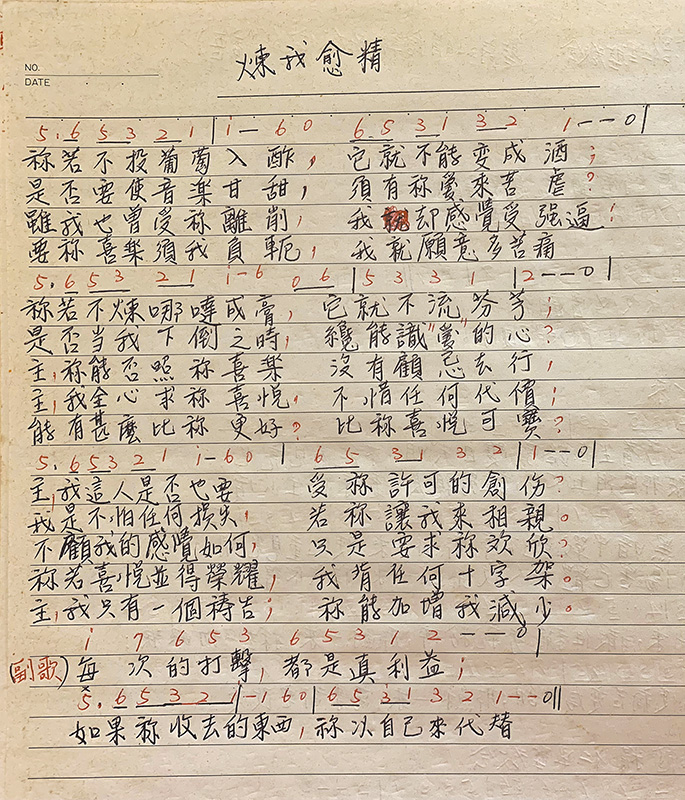 煉我愈精
NO.
DATE
5.6 53 21 | i— 60 6531 32 1——0|
祢若不投葡萄入酢, 它就不能變成酒;
是否要使音楽甘甜, 須有祢愛來苦虐?
雖我也曾受祢離削, 我却感覺受强逼!
要祢喜樂須我負軛, 我就願意多苦痛
5.653 21 i-6 06 | 5331 |2——0|
祢若不煉哪噠成膏, 它就不流芬芳;
是否当我下倒之時, 纔能識"愛"的心?
主,祢能否照祢喜樂 沒有顧忌去行,
主,我全心求祢喜悅, 不惜任何代價;
能有甚麼比祢更好? 比祢喜悅可寶?
5.6532 1 i-60 | 65 31 32 |1——0|
主,我這人是否也要 受祢許可的創伤?
我是不怕任何損失, 若祢讓我來相親。
不顧我的感覺如何, 只是要求祢欢欣?
祢若喜悅並得榮耀, 我背任何十字架。
主,我只有一個祷告; 祢能加增我減少。
i 7 6 5 3 6 5 3 1 2 ———0|
(副歌)每次的打擊, 都是真利益;
5.6 5321 |-1 60 | 6531 32 1——0||
如果祢收去的東西, 祢以自己來代替